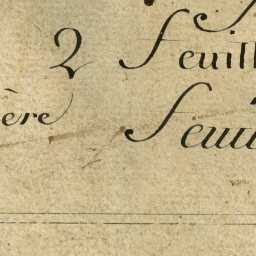 2 feuill
ère feuil